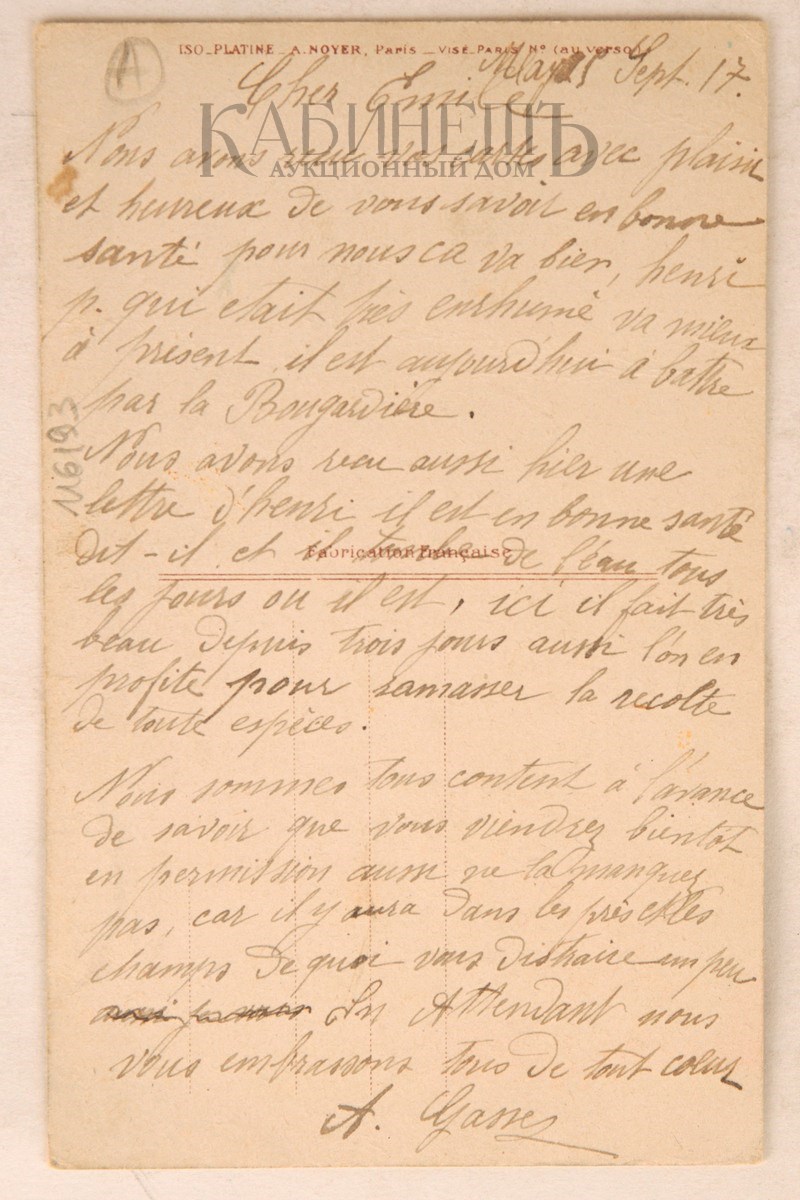 A
ISO-PLATINE - A. NOYER, Paris - VISÉ PARIS Nº (au verso)
Sept. 17.
Cher Emile
КАБИНЕТЪ
АУКЦИОННЫЙ ДОМ
Nous avons reçue vos cartes avec plaisir
et heureux de vous savoir en bonne
santé pour nous ca va bien, henri
p. qui etait très enrhumé va mieux
à présent il est aujourd'hui à battre
par la Bougardière.
Nous avons recu aussi hier une
lettre d'henri il est en bonne santé
dit-il et il tombe de l'eau tous
Fabrication Française
les jours ou il est, ici il fait très
beau depuis trois jours aussi l'on en
profite pour ramasser la recolte
de toute espèces.
Nous sommes tous content à l'avance
de savoir que vous viendrez bientôt
en permission aussi ne la manquez
pas, car il y aura dans les près et les
champs de quoi vous distraire un peu
En Attendant nous
vous embrassons tous de tout coeur
A.
116193